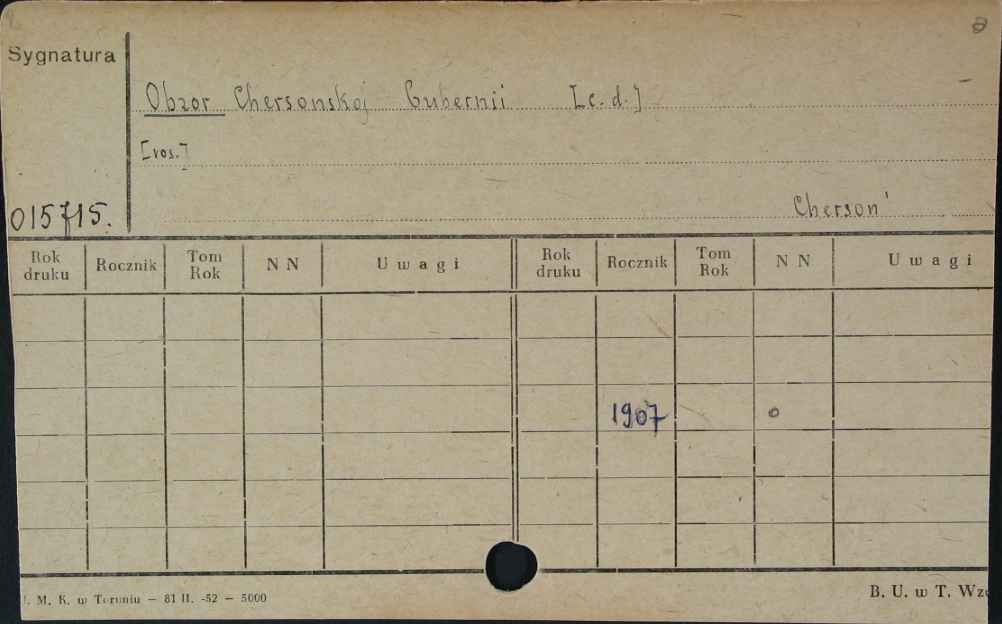 Sygnatura
Obzor Chersonskoj Gubernii [c.d.]
[ros.]
015715.
Cherson'
Rok druku Rocznik Tom Rok N N Uwagi Rok druku Rocznik Tom Rok N N Uwagi
1907 o
M. K. w Toruniu — 81 II. -52 — 5000
B. U. w T.